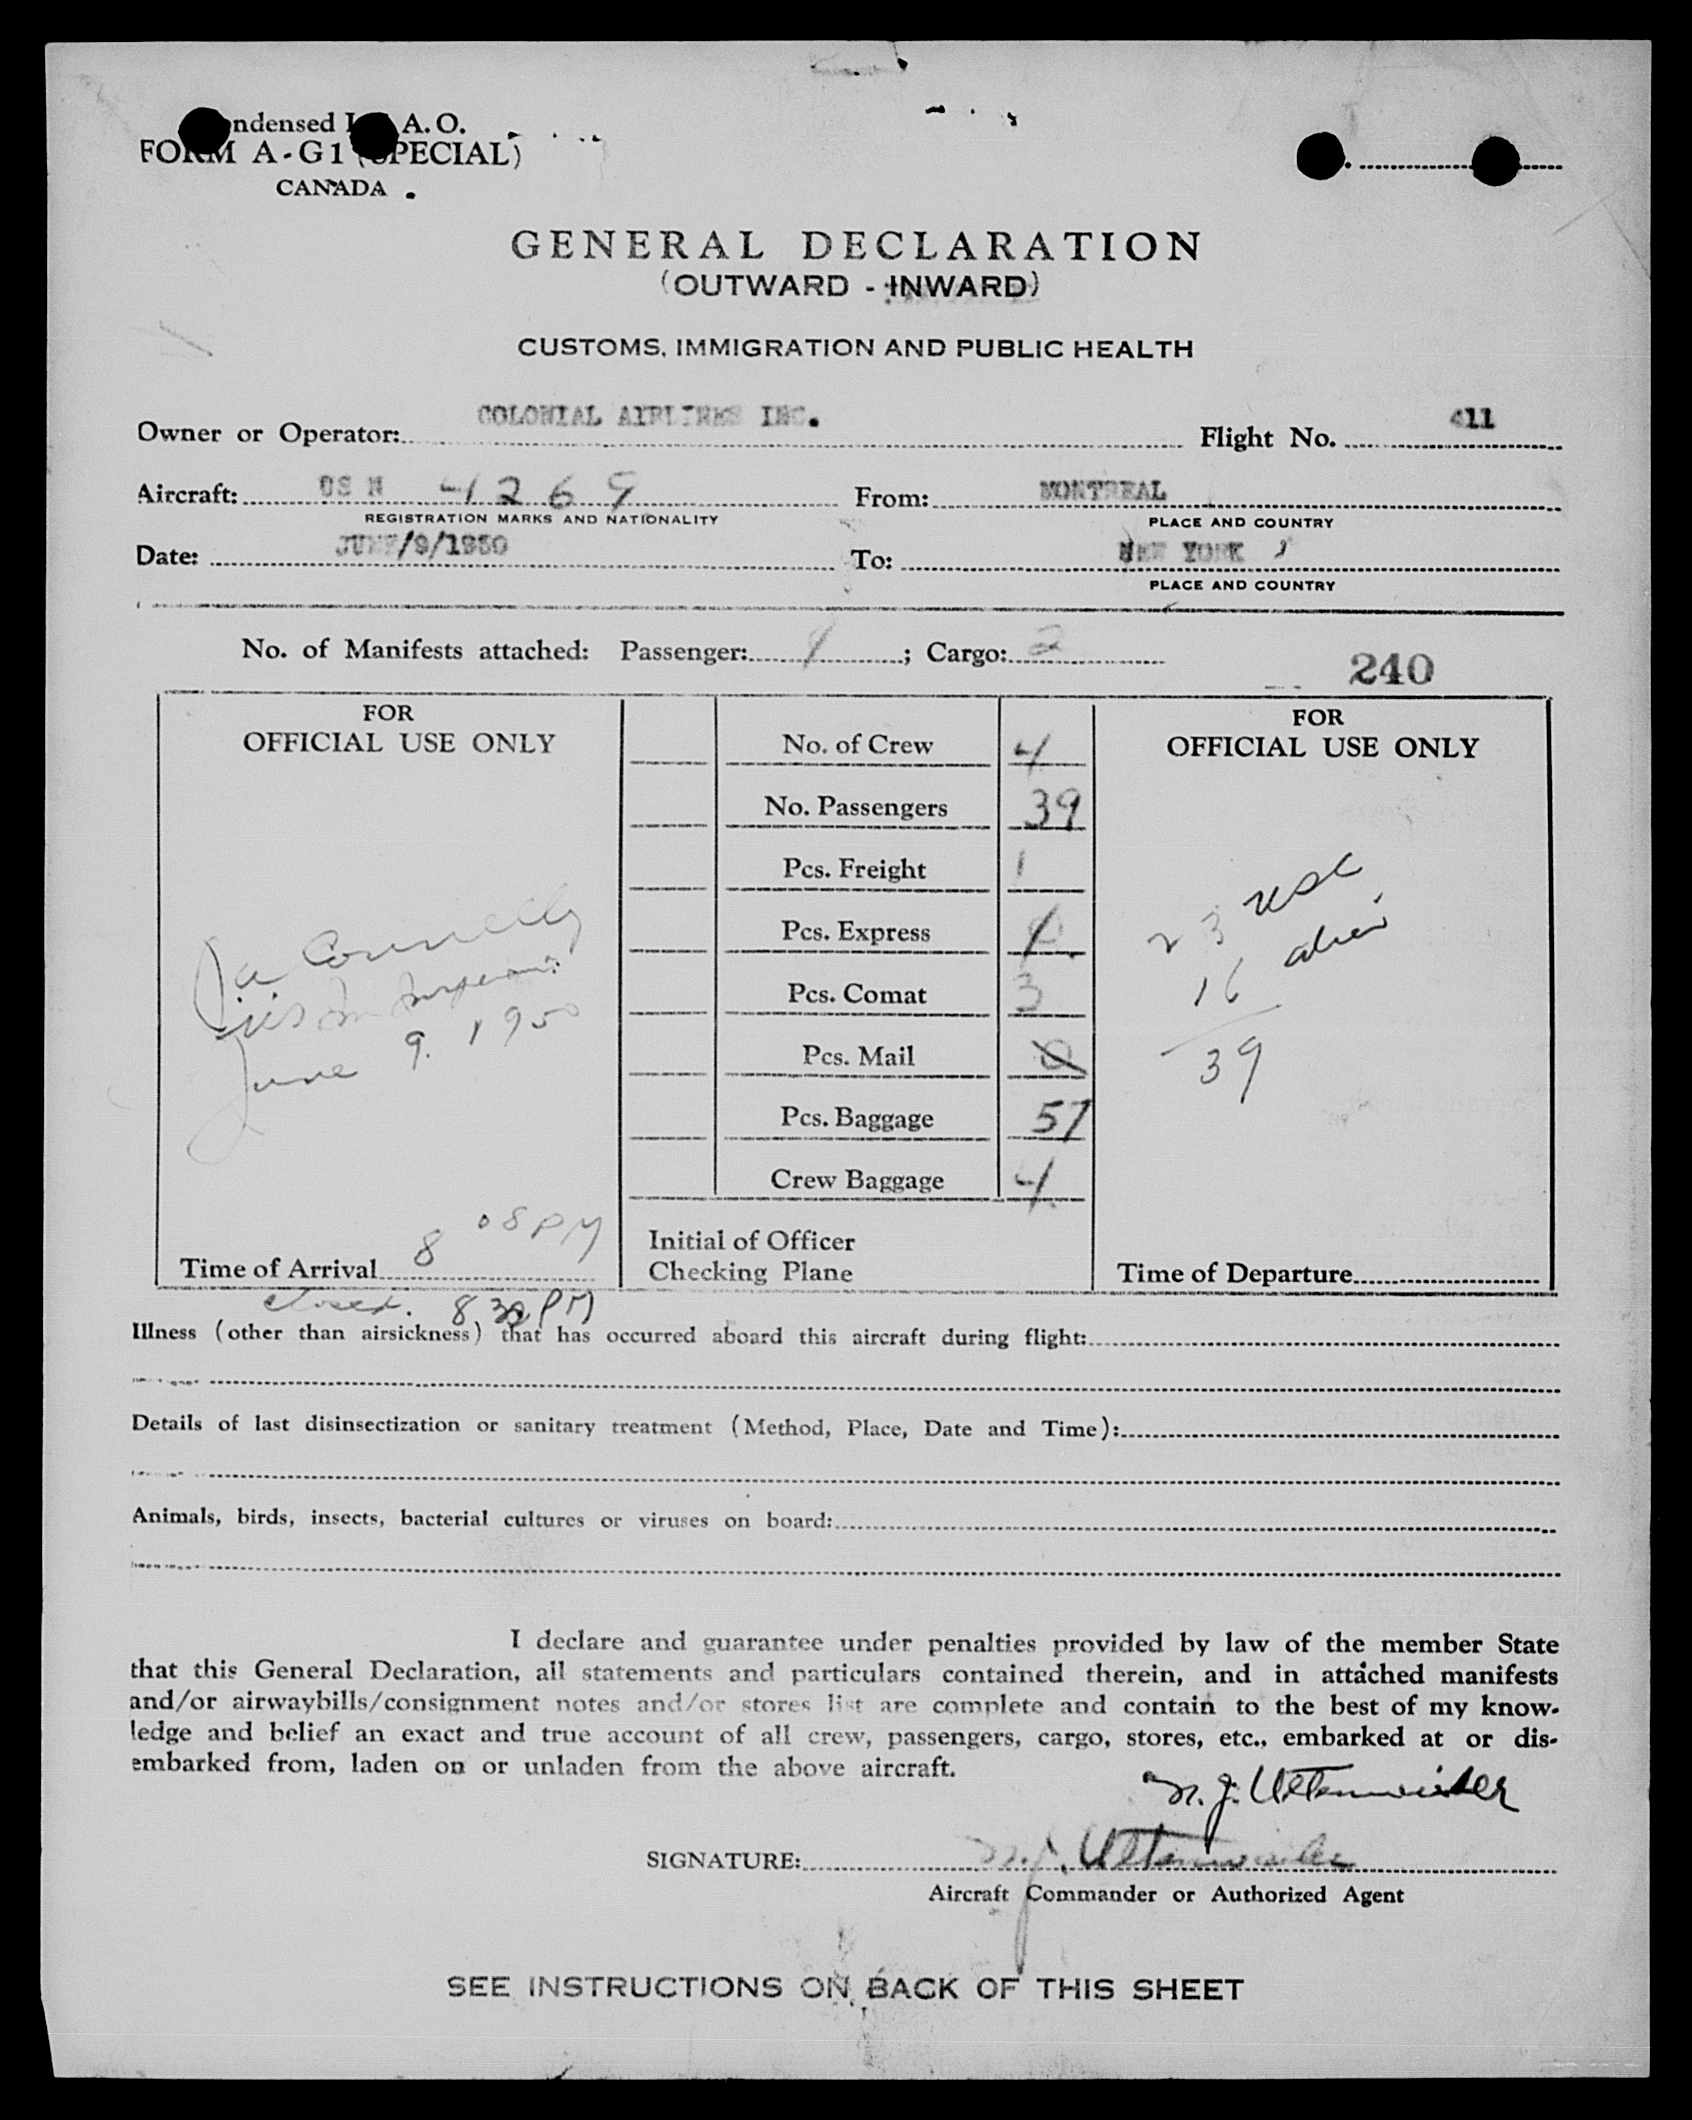 ndensed I A. O.
FORM A-G1 (SPECIAL)
CANADA
GENERAL DECLARATION
(OUTWARD - INWARD)
CUSTOMS, IMMIGRATION AND PUBLIC HEALTH
Owner or Operator: COLONIAL AIRLINES INC. Flight No. 411
Aircraft: US N 4269 From: MONTREAL
REGISTRATION MARKS AND NATIONALITY PLACE AND COUNTRY
Date: JUNE/9/1950 To: NEW YORK
PLACE AND COUNTRY
No. of Manifests attached: Passenger: 1; Cargo: 2
240
FOR
OFFICIAL USE ONLY
No. of Crew 4
No. Passengers 39
Pcs. Freight 1
Pcs. Express
Pcs. Comat 3
Pcs. Mail 0
Pcs. Baggage 57
Crew Baggage 4
Initial of Officer
Checking Plane
FOR
OFFICIAL USE ONLY
23 USC
16 alien
39
Time of Departure
Connelly
June 9. 1950
Time of Arrival 8 08 PM
closed. 8 30 PM
Illness (other than airsickness) that has occurred aboard this aircraft during flight:
Details of last disinsectization or sanitary treatment (Method, Place, Date and Time):
Animals, birds, insects, bacterial cultures or viruses on board:
I declare and guarantee under penalties provided by law of the member State
that this General Declaration, all statements and particulars contained therein, and in attached manifests
and/or airwaybills/consignment notes and/or stores list are complete and contain to the best of my know-
ledge and belief an exact and true account of all crew, passengers, cargo, stores, etc., embarked at or dis-
embarked from, laden on or unladen from the above aircraft.
SIGNATURE:
Aircraft Commander or Authorized Agent
SEE INSTRUCTIONS ON BACK OF THIS SHEET